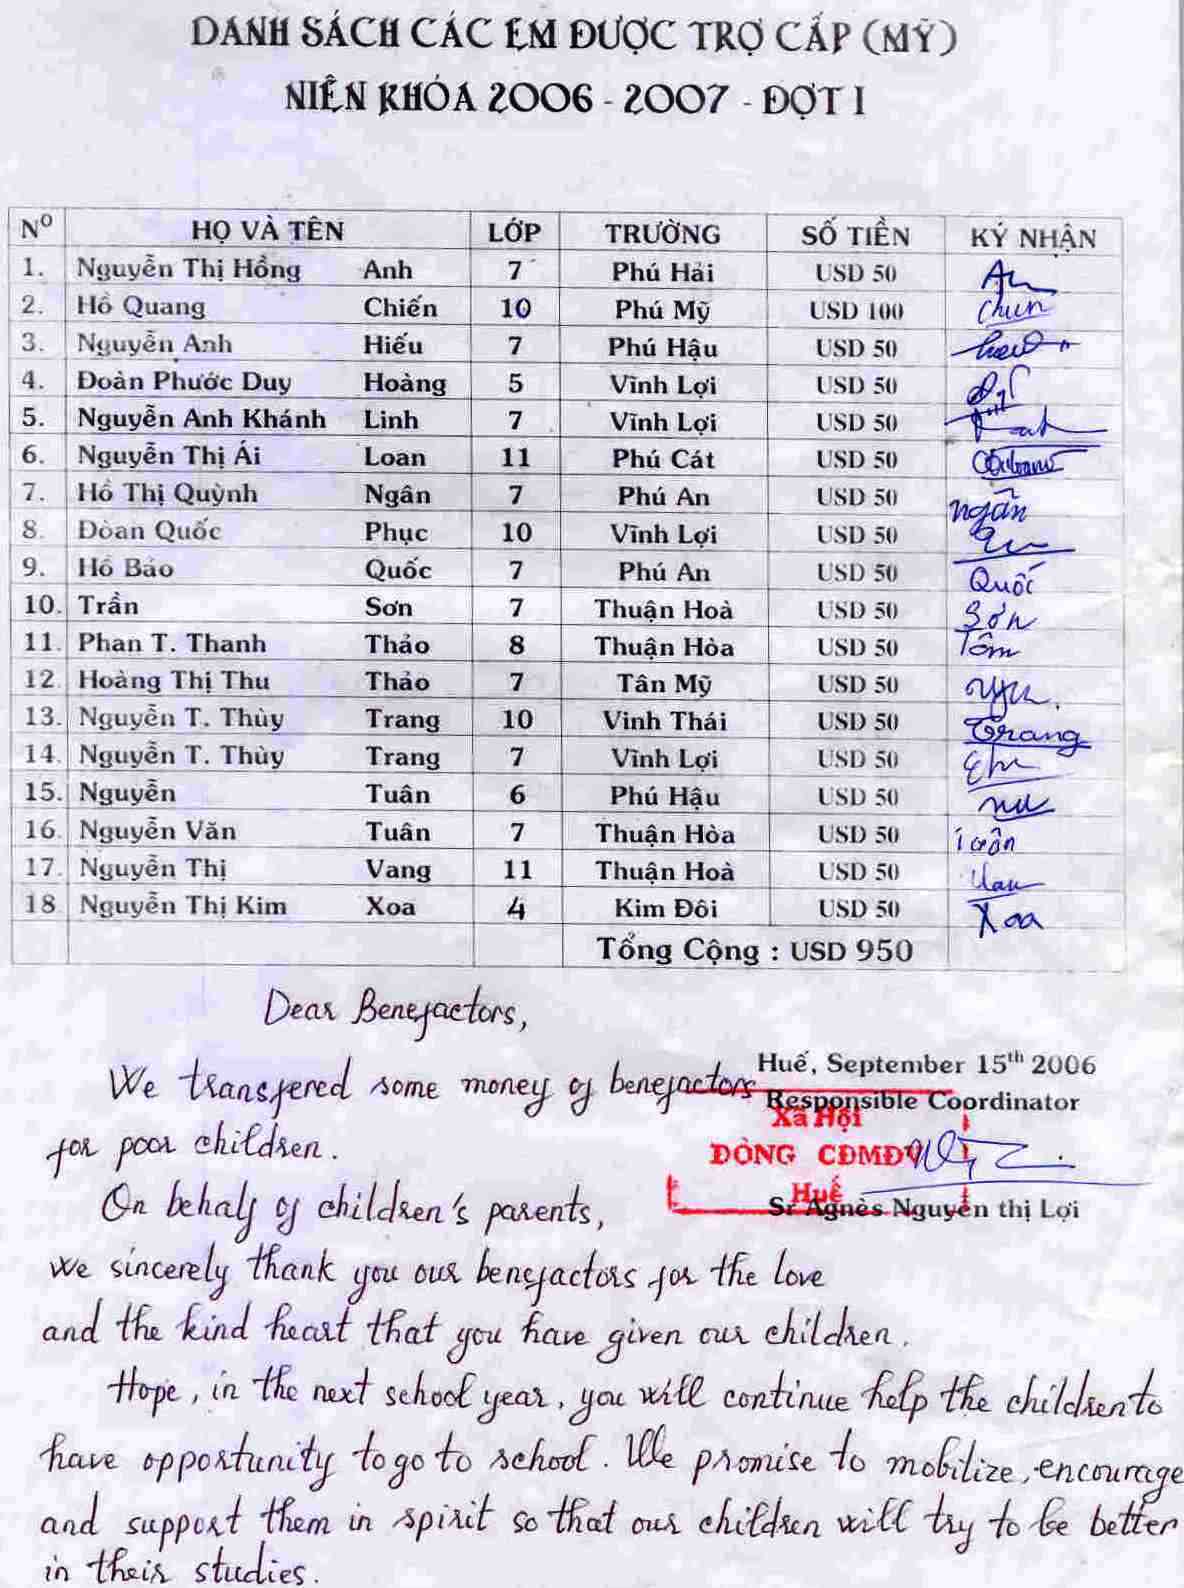 DANH SÁCH CÁC EM ĐƯỢC TRỢ CẤP (MỸ)
NIÊN KHÓA 2006 - 2007 - ĐỢT I
Nº HỌ VÀ TÊN LỚP TRƯỜNG SỐ TIỀN KÝ NHẬN
1. Nguyễn Thị Hồng Anh 7 Phú Hải USD 50
2. Hồ Quang Chiến 10 Phú Mỹ USD 100
3. Nguyễn Anh Hiếu 7 Phú Hậu USD 50
4. Đoàn Phước Duy Hoàng 5 Vĩnh Lợi USD 50
5. Nguyễn Anh Khánh Linh 7 Vĩnh Lợi USD 50
6. Nguyễn Thị Ái Loan 11 Phú Cát USD 50
7. Hồ Thị Quỳnh Ngân 7 Phú An USD 50 Ngân
8. Đòan Quốc Phục 10 Vĩnh Lợi USD 50
9. Hồ Bảo Quốc 7 Phú An USD 50 Quốc
10. Trần Sơn 7 Thuận Hoà USD 50 Sơn
11. Phan T. Thanh Thảo 8 Thuận Hòa USD 50 Tôm
12. Hoàng Thị Thu Thảo 7 Tân Mỹ USD 50
13. Nguyễn T. Thùy Trang 10 Vinh Thái USD 50 Trang
14. Nguyễn T. Thùy Trang 7 Vĩnh Lợi USD 50
15. Nguyễn Tuân 6 Phú Hậu USD 50
16. Nguyễn Văn Tuân 7 Thuận Hòa USD 50
17. Nguyễn Thị Vang 11 Thuận Hoà USD 50
18. Nguyễn Thị Kim Xoa 4 Kim Đôi USD 50 Xoa
Tổng Cộng : USD 950
Dear Benefactors,
Huế, September 15th 2006
We transfered some money of benefactors
Responsible Coordinator
Xã Hội
for poor children.
ĐÒNG CĐMĐV
Huế
Sr Agnès Nguyễn thị Lợi
On behalf of children's parents,
we sincerely thank you our benefactors for the love
and the kind heart that you have given our children.
Hope, in the next school year, you will continue help the children to
have opportunity to go to school. We promise to mobilize, encourage
and support them in spirit so that our children will try to be better
in their studies.